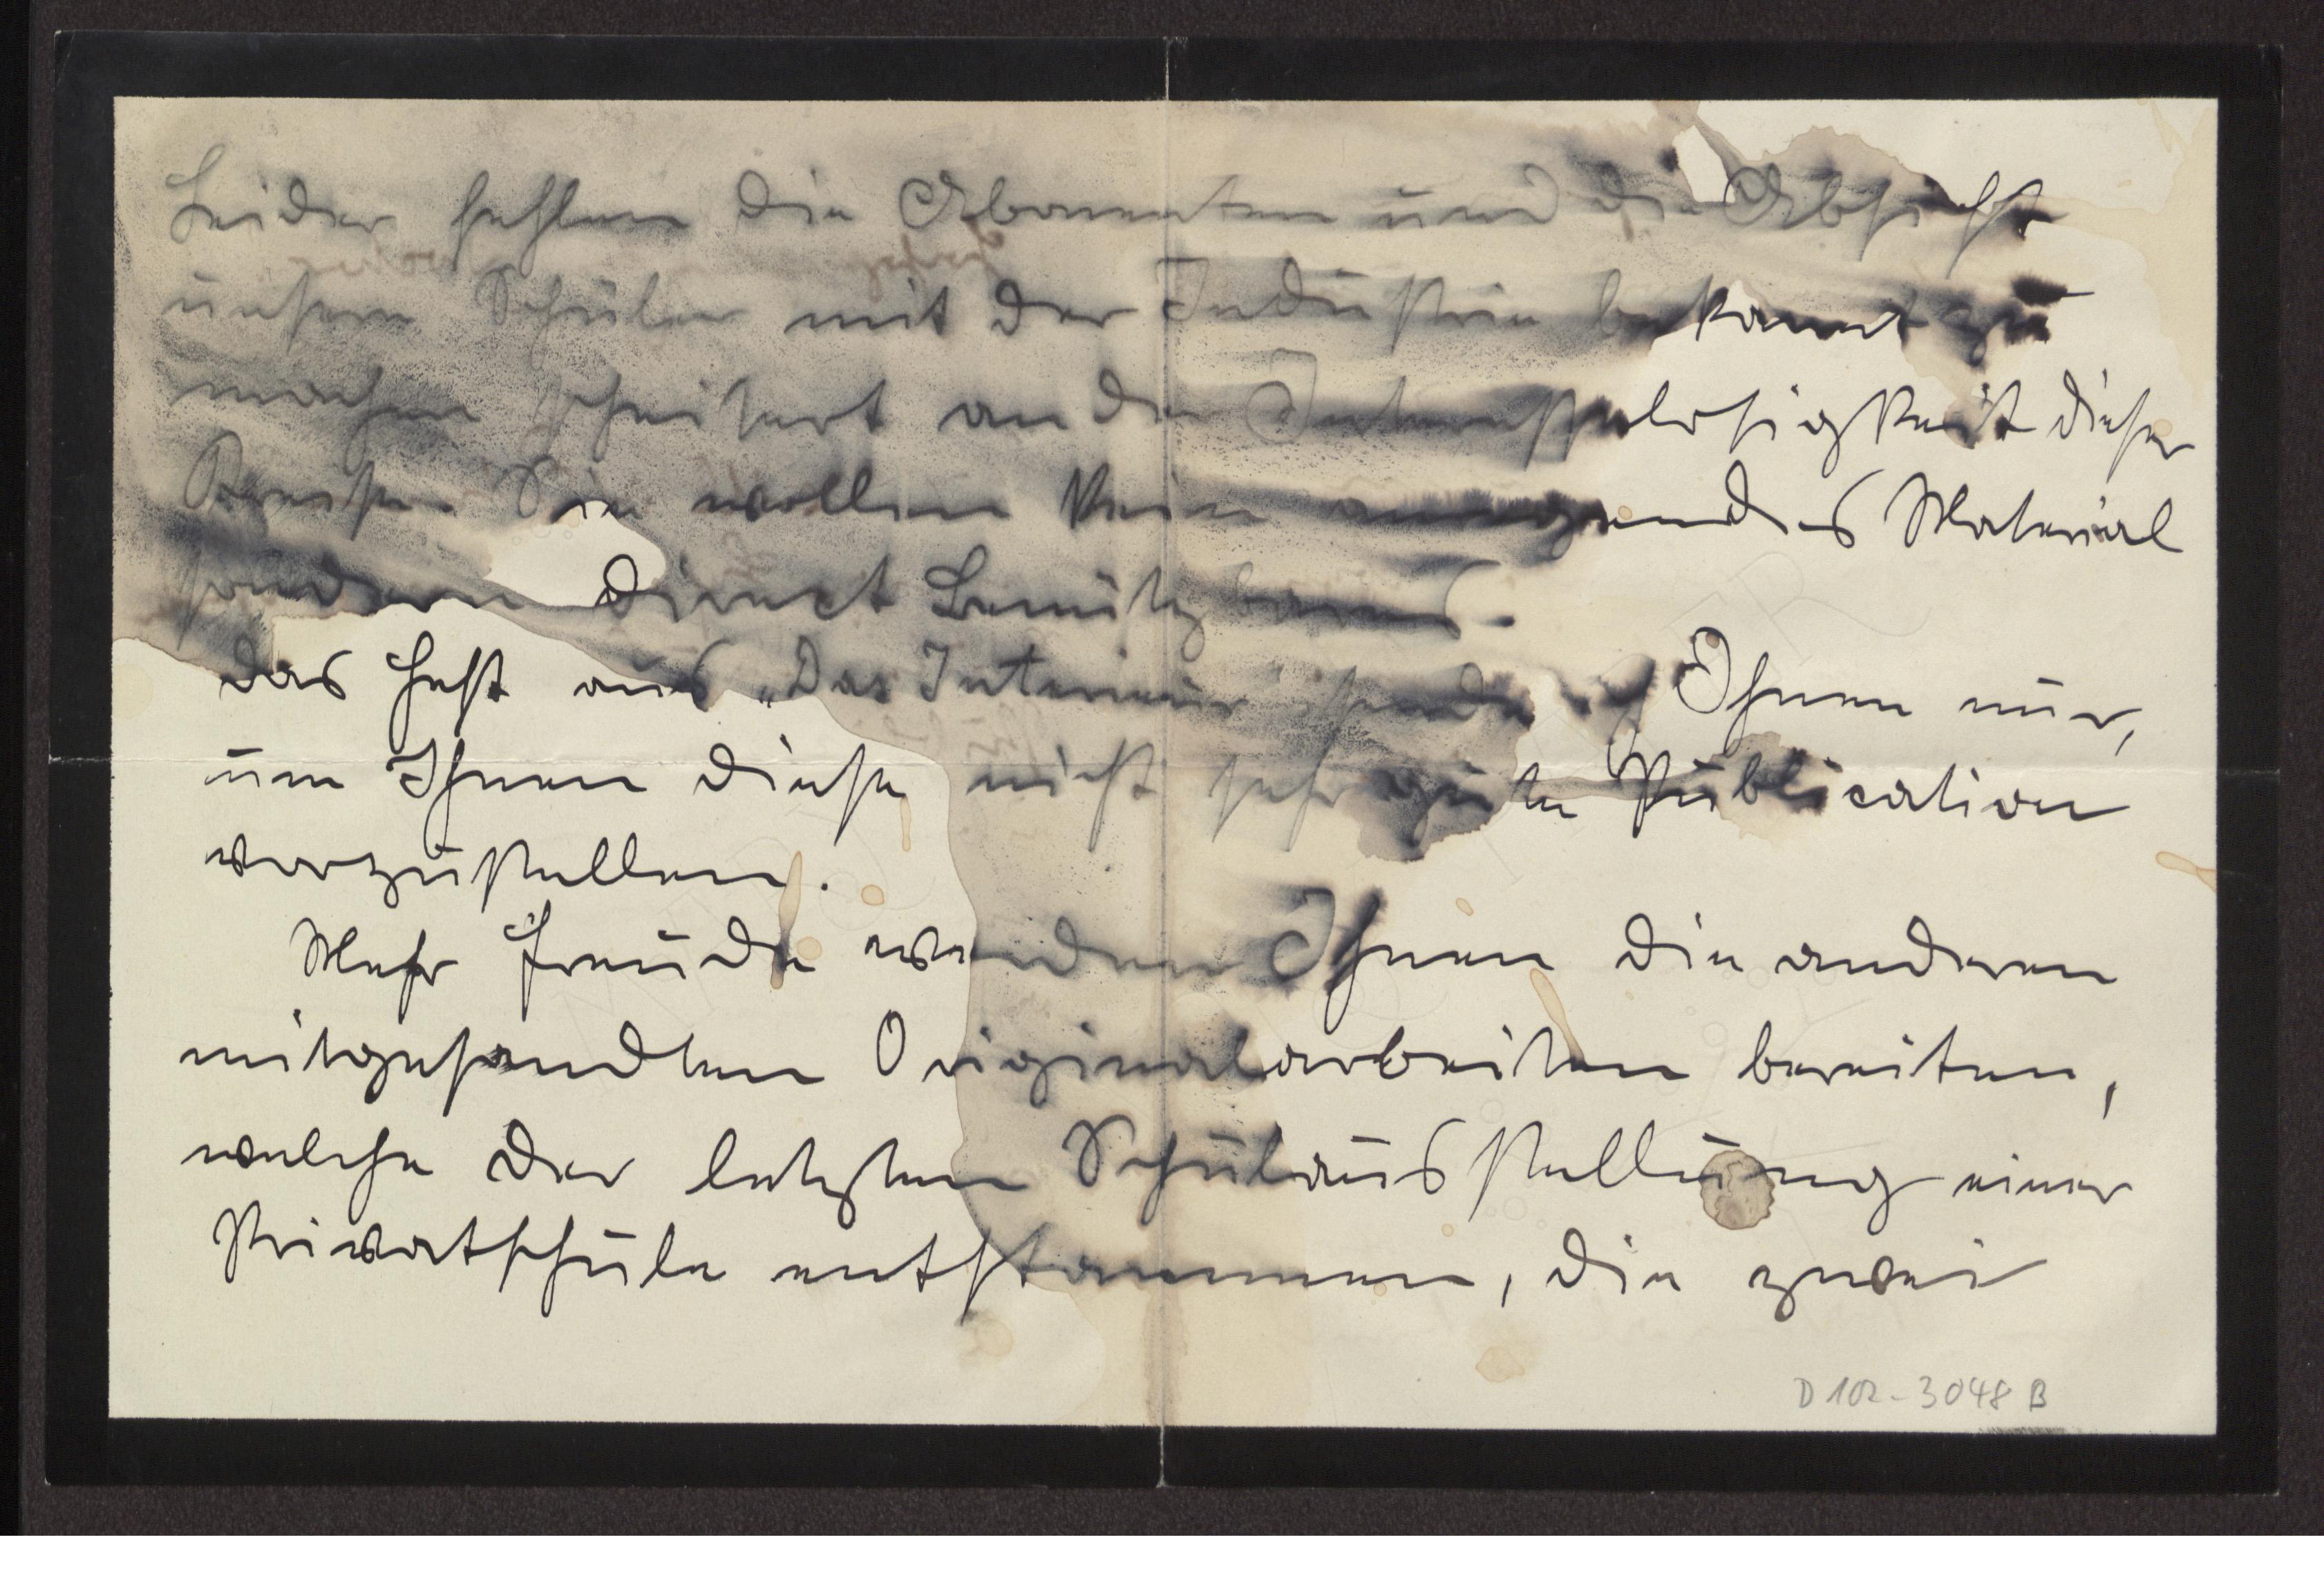 Leider fehlen die Abonnenten und die Absicht
unsere Schüler mit der Industrie bekannt zu
machen scheitert an der Interesselosigkeit dieser
Kreise. Sie wollen kein anregendes Material
sondern direct Benützbares.
Das Heft aus „Das Interieur" sende ich Ihnen nur,
um Ihnen diese nicht sehr gute Publication
vorzustellen.
Mehr Freude werden Ihnen die anderen
mitgesandten Originalarbeiten bereiten,
welche der letzten Schulausstellung einer
Privatschule entstammen, die zwei
D 102-3048 B